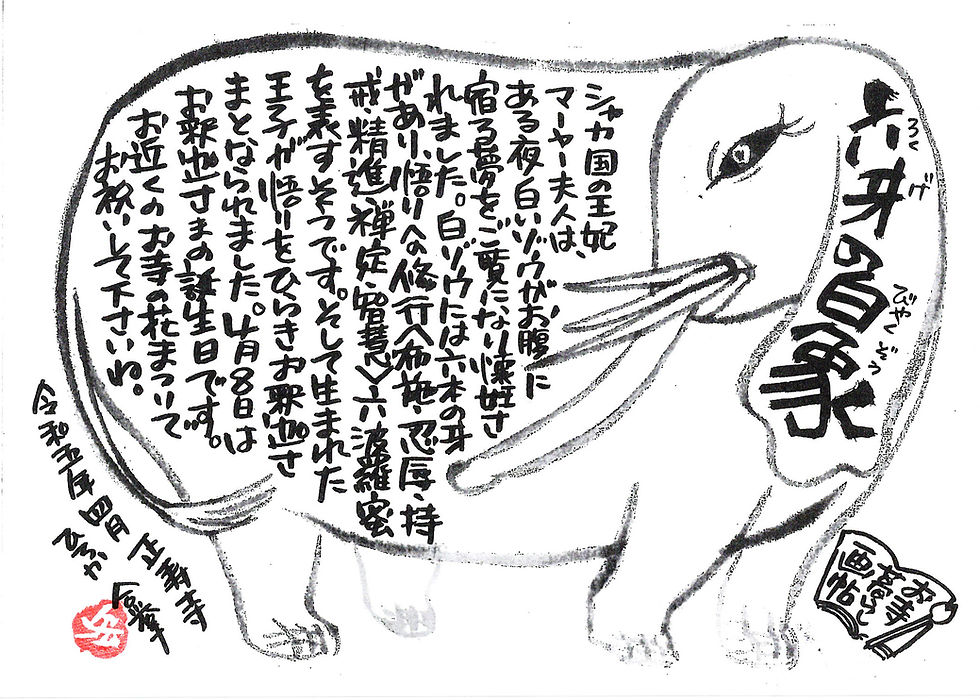 六牙の白象
ろくげ
びゃくぞう
シャカ国の王妃
マーヤー夫人は、
ある夜白いゾウがお腹に
宿る夢をご覧になり懐妊さ
れました。白ゾウには六本の牙
があり、悟りへの修行〈布施・忍辱・持
戒・精進・禅定・智慧〉六波羅蜜
を表すそうです。そして生まれた
王子が悟りをひらきお釈迦さ
まとなられました。4月8日は
お釈迦さまの誕生日です。
お近くのお寺の花まつりで
お祝いして下さいね。
令和五年四月
正寿寺
合掌
お寺
暮らし
画帖